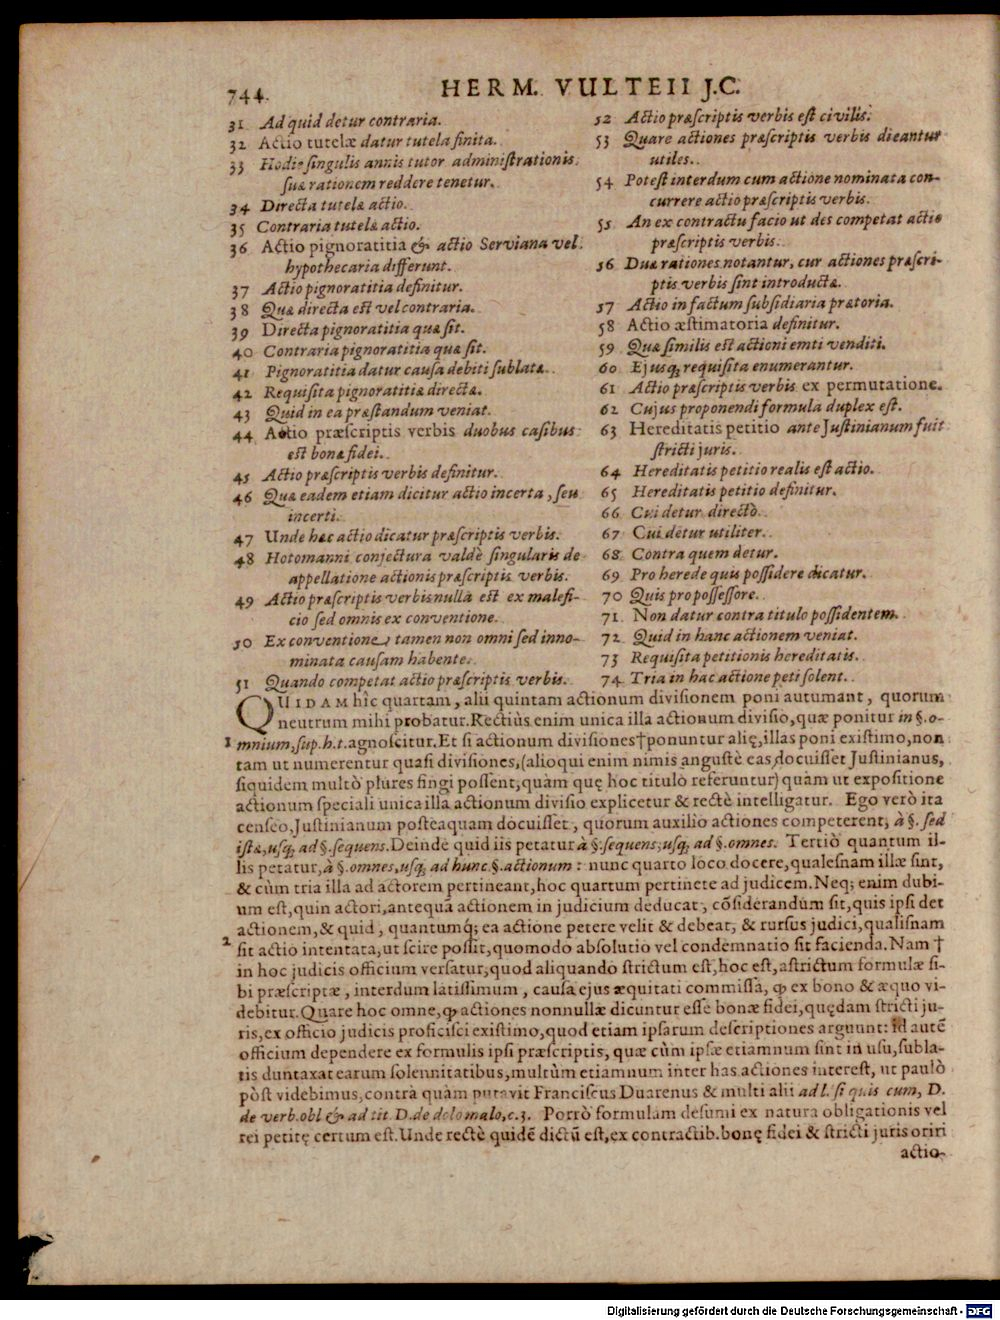 744.
HERM. VULTEII J.C.
31 Ad quid detur contraria.
32 Actio tutelæ datur tutela finita.
33 Hodie singulis annis tutor administrationis
suæ rationem reddere tenetur.
34 Directa tutelæ actio.
35 Contraria tutelæ actio.
36 Actio pignoratitia & actio Serviana vel
hypothecaria differunt.
37 Actio pignoratitia definitur.
38 Quæ directa est vel contraria.
39 Directa pignoratitia quæ sit.
40 Contraria pignoratitia quæ sit.
41 Pignoratitia datur causa debiti sublatæ.
42 Requisita pignoratitiæ directæ.
43 Quid in ea præstandum veniat.
44 Actio præscriptis verbis duobus casibus
est bonæ fidei.
45 Actio præscriptis verbis definitur.
46 Quæ eadem etiam dicitur actio incerta, seu
incerti.
47 Unde hæc actio dicatur præscriptis verbis.
48 Hotomanni conjectura valdè singularis de
appellatione actionis præscriptis verbis.
49 Actio præscriptis verbis nulla est ex malefi-
cio sed omnis ex conventione.
50 Ex conventione tamen non omni sed inno-
minata causam habente.
51 Quando competat actio præscriptis verbis.
52 Actio præscriptis verbis est civilis.
53 Quare actiones præscriptis verbis dicantur
utiles.
54 Potest interdum cum actione nominata con-
currere actio præscriptis verbis.
55 An ex contractu facio ut des competat actio
præscriptis verbis.
56 Duæ rationes notantur, cur actiones præscri-
ptis verbis sint introductæ.
57 Actio in factum subsidiaria prætoria.
58 Actio æstimatoria definitur.
59 Quæ similis est actioni emti venditi.
60 Ejusq; requisita enumerantur.
61 Actio præscriptis verbis ex permutatione.
62 Cujus proponendi formula duplex est.
63 Hereditatis petitio ante Justinianum fuit
stricti juris.
64 Hereditatis petitio realis est actio.
65 Hereditatis petitio definitur.
66 Cui detur directò.
67 Cui detur utiliter.
68 Contra quem detur.
69 Pro herede quis possidere dicatur.
70 Quis pro possessore.
71 Non datur contra titulo possidentem.
72 Quid in hanc actionem veniat.
73 Requisita petitionis hereditatis.
74 Tria in hac actione peti solent.
QUIDAM hîc quartam, alii quintam actionum divisionem poni autumant, quorum
neutrum mihi probatur. Rectiùs enim unica illa actionum divisio, quæ ponitur in §. o-
1 mnium, sup. h.t. agnoscitur. Et si actionum divisiones † ponuntur alię, illas poni existimo, non
tam ut numerentur quasi divisiones, (alioqui enim nimis angustè eas docuisset Justinianus,
siquidem multò plures fingi possent, quàm quę hoc titulo referuntur) quàm ut expositione
actionum speciali unica illa actionum divisio explicetur & rectè intelligatur. Ego verò ita
censeo, Justinianum posteaquam docuisset, quorum auxilio actiones competerent, à §. sed
istæ, usq; ad §. sequens. Deinde quid iis petatur à §. sequens, usq; ad §. omnes. Tertiò quantum il-
lis petatur, à §. omnes, usq; ad hunc §. actionum: nunc quarto loco docere, qualesnam illæ sint,
& cùm tria illa ad actorem pertineant, hoc quartum pertinere ad judicem. Neq; enim dubi-
um est, quin actori, antequã actionem in judicium deducat, cõsiderandum sit, quis ipsi det
actionem, & quid, quantumq; ea actione petere velit & debeat, & rursus judici, qualisnam
2 sit actio intentata, ut scire possit, quomodo absolutio vel condemnatio sit facienda. Nam †
in hoc judicis officium versatur, quod aliquando strictum est, hoc est, astrictum formulæ si-
bi præscriptæ, interdum latissimum, causa ejus æquitati commissa, ꝙ ex bono & æquo vi-
debitur. Quare hoc omne, ꝙ actiones nonnullæ dicuntur esse bonæ fidei, quędam stricti ju-
ris, ex officio judicis proficisci existimo, quod etiam ipsarum descriptiones arguunt: id autẽ
officium dependere ex formulis ipsi præscriptis, quæ cùm ipsæ etiamnum sint in usu, subla-
tis duntaxat earum solennitatibus, multùm etiamnum inter has actiones interest, ut paulò
pòst videbimus, contrà quàm putavit Franciscus Duarenus & multi alii ad l. si quis cum, D.
de verb. obl & ad tit. D. de dolo malo, c. 3. Porrò formulam desumi ex natura obligationis vel
rei petitę certum est. Unde rectè quidẽ dictũ est, ex contractib. bonę fidei & stricti juris oriri
actio-
Digitalisierung gefördert durch die Deutsche Forschungsgemeinschaft - DFG